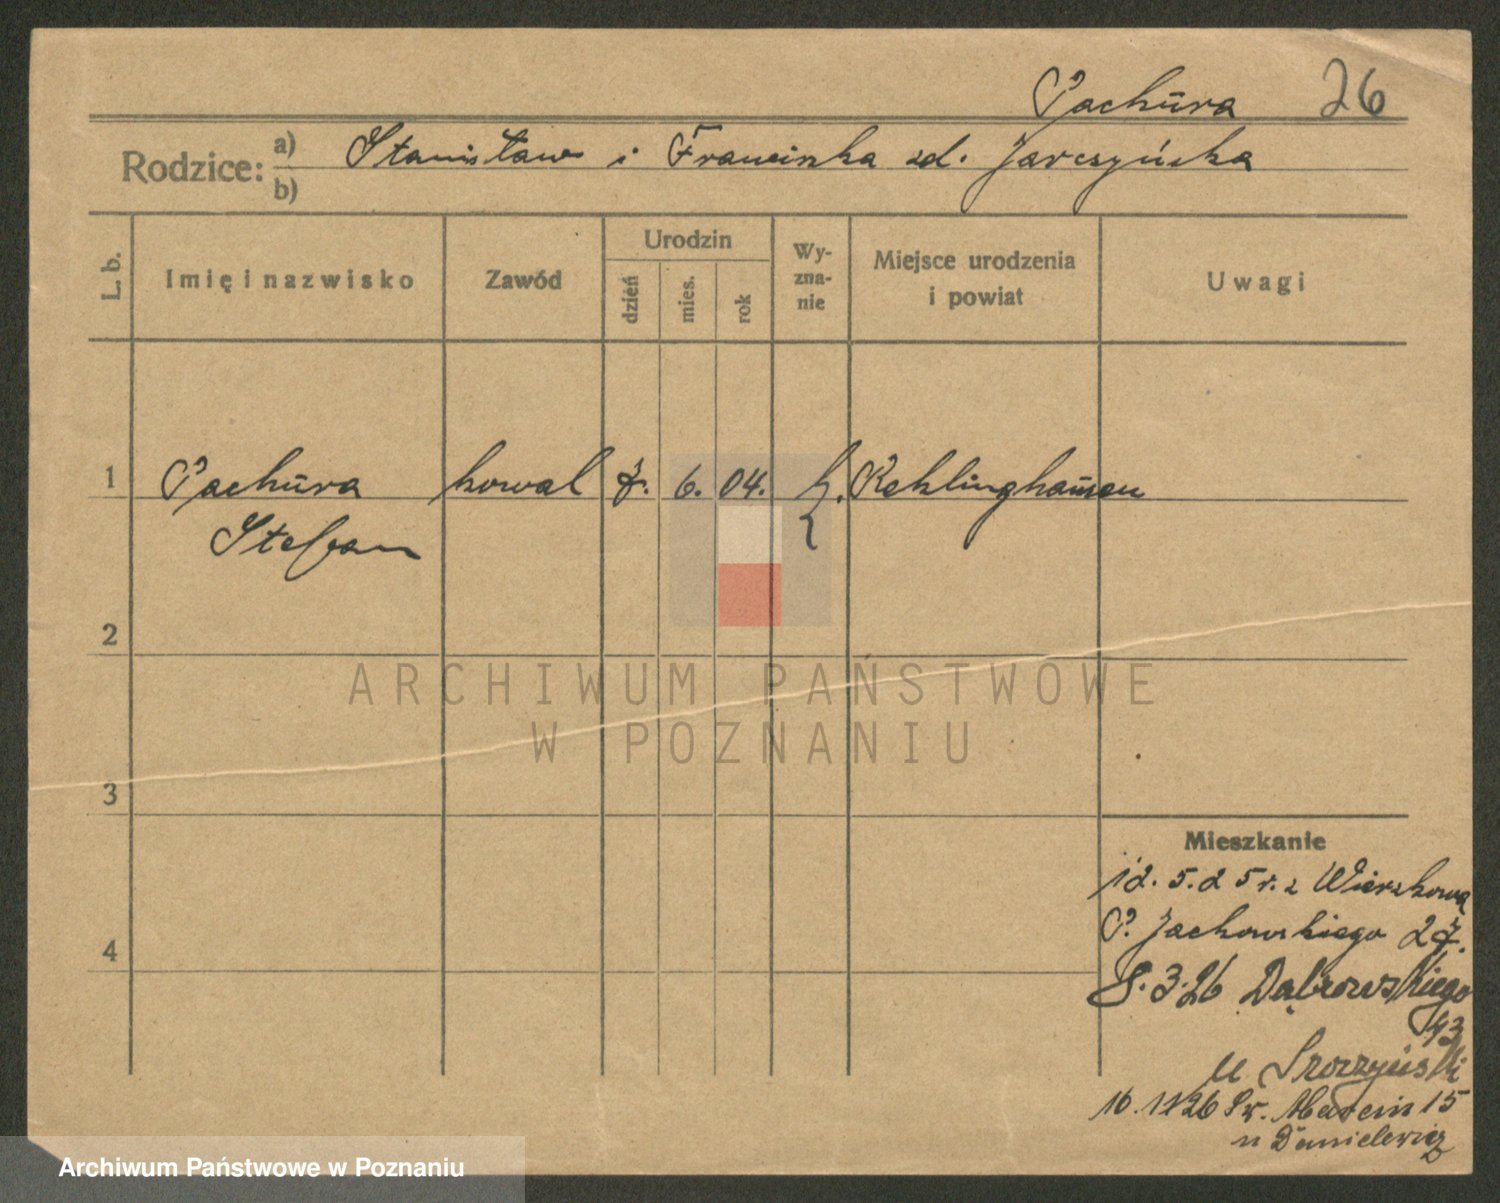 Pachura 26
Rodzice: a) Stanisław i Franciszka zd. Jarczyńska
b)
L. b. Imię i nazwisko Zawód Urodzin dzień mies. rok Wyznanie Miejsce urodzenia i powiat Uwagi
1 Pachura kowal 7. 6. 04. k. Reklinghausen
Stefan
2
ARCHIWUM PAŃSTWOWE
W POZNANIU
3
Mieszkanie
12. 5. 25 r. z Wierzkowa
P. Jackowskiego 27.
4
8. 3. 26 Dąbrowskiego
43
u
16. 11 26 Św. Marcin 15
u Danielewicz
Archiwum Państwowe w Poznaniu